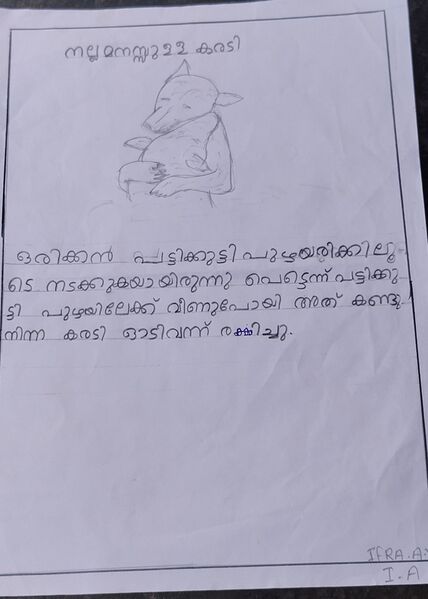 നല്ല മനസ്സുള്ള കരടി
ഒരിക്കൽ പട്ടിക്കുട്ടി പുഴയരികിലൂ
ടെ നടക്കുകയായിരുന്നു പെട്ടെന്ന് പട്ടിക്കു
ട്ടി പുഴയിലേക്ക് വീണുപോയി അത് കണ്ടു
നിന്ന കരടി ഓടിവന്ന് രക്ഷിച്ചു.
IFRA.A.
I.A